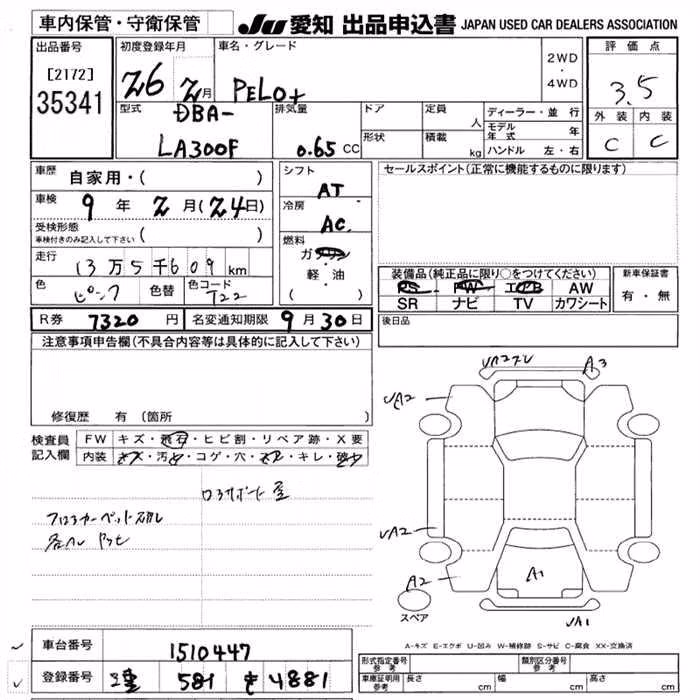 車内保管・守衛保管
JU 愛知 出品申込書 JAPAN USED CAR DEALERS ASSOCIATION
出品番号
[2172]
35341
初度登録年月
26 2月
車名・グレード
PELOt
2WD
・
4WD
評価点
3.5
外装 内装
C C
型式
DBA-
LA300F
排気量
0.65 CC
ドア
形状
定員 人
積載 kg
ディーラー・並行
モデル年式 年
ハンドル 左・右
車歴 自家用・( )
車検 9年 2月(24日)
受検形態
車検付きのみ記入して下さい ( )
走行 13万5千609km
色 ピンク 色替 色コード T22
シフト
AT
冷房
AC
燃料
ガソリン
・
軽・油
( )
セールスポイント(正常に機能するものに限ります)
装備品(純正品に限り○をつけてください)
PS PW エアB AW
SR ナビ TV カワシート
新車保証書
有・無
後日品
R券 7320 円 名変通知期限 9月30日
注意事項申告欄(不具合内容等は具体的に記入して下さい)
修復歴 有(箇所
検査員
記入欄
FW キズ・飛石・ヒビ割・リペア跡・X要
内装 キズ・汚れ・コゲ・穴・スレ・キレ・破レ
フロアカーペット
A3
UA2
UA2
A2
A1
UA1
スペア
A-キズ E-エクボ U-凹み W-補修跡 S-サビ C-腐食 XX-交換済
車台番号 1510447
登録番号 三重 581 き 4881
形式指定番号
参考
類別区分番号
参考
車庫証明用
参考
長さ cm 幅 cm 高さ cm